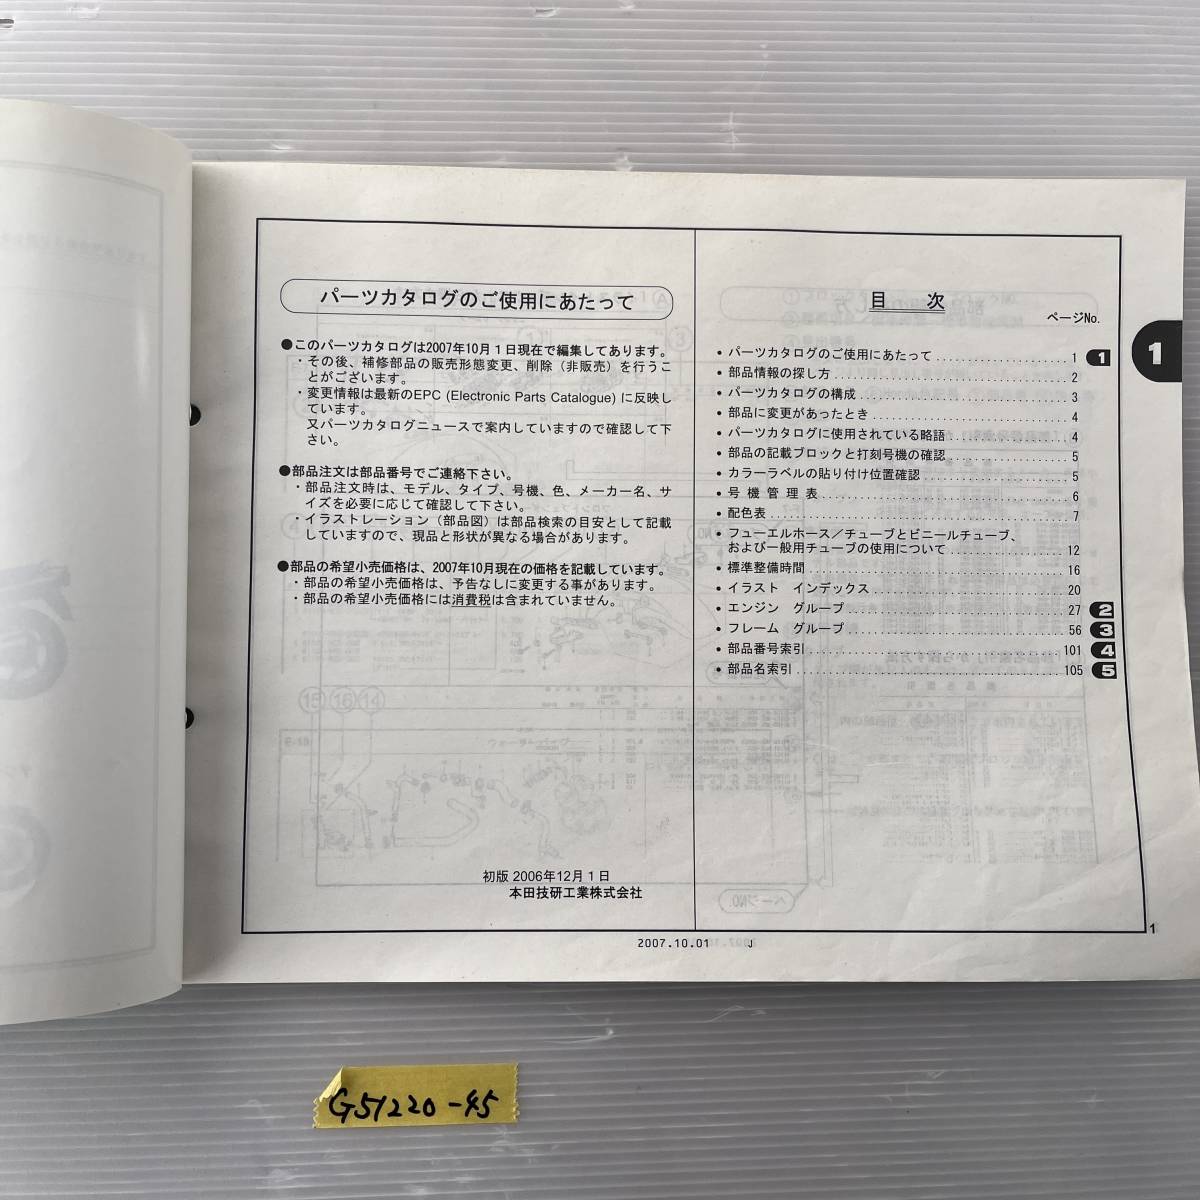 パーツカタログのご使用にあたって
●このパーツカタログは2007年10月１日現在で編集してあります。
・その後、補修部品の販売形態変更、削除（非販売）を行うこ
とがございます。
・変更情報は最新のEPC (Electronic Parts Catalogue) に反映し
ています。
又パーツカタログニュースで案内していますので確認して下
さい。
●部品注文は部品番号でご連絡下さい。
・部品注文時は、モデル、タイプ、号機、色、メーカー名、サ
イズを必要に応じて確認して下さい。
・イラストレーション（部品図）は部品検索の目安として記載
していますので、現品と形状が異なる場合があります。
●部品の希望小売価格は、2007年10月現在の価格を記載しています。
・部品の希望小売価格は、予告なしに変更する事があります。
・部品の希望小売価格には消費税は含まれていません。
初版 2006年12月１日
本田技研工業株式会社
目　次
ページNo.
• パーツカタログのご使用にあたって ...................... 1 1
• 部品情報の探し方 ...................... 2
• パーツカタログの構成 ...................... 3
• 部品に変更があったとき ...................... 4
• パーツカタログに使用されている略語 ...................... 4
• 部品の記載ブロックと打刻号機の確認 ...................... 5
• カラーラベルの貼り付け位置確認 ...................... 5
• 号 機 管 理 表 ...................... 6
• 配色表 ...................... 7
• フューエルホース／チューブとビニールチューブ、
および一般用チューブの使用について ...................... 12
• 標準整備時間 ...................... 16
• イラスト　インデックス ...................... 20
• エンジン　グループ ...................... 27 2
• フレーム　グループ ...................... 56 3
• 部品番号索引 ...................... 101 4
• 部品名索引 ...................... 105 5
1
2007.10.01 J
1
G51220-45